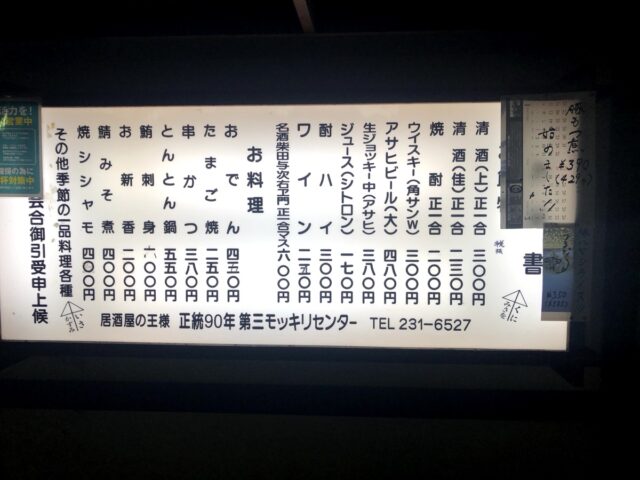 書
清酒(上)正一合 三〇〇円
清酒(佳)正一合 二三〇円
焼酎正一合 二〇〇円
ウイスキー(角サンW) 三〇〇円
アサヒビール(大) 四八〇円
生ジョッキー中(アサヒ) 三八〇円
ジュース(シトロン) 一七〇円
酎ハイ 三〇〇円
ワイン
名酒柴田与次右ヱ門正一合マス六〇〇円
お料理
おでん
たまご焼 二五〇円
串かつ 三八〇円
とんとん鍋 五五〇円
鮪刺身 六〇〇円
お新香 二〇〇円
鯖みそ煮 四〇〇円
焼シシャモ 四〇〇円
その他季節の一品料理各種
会合御引受申上候
居酒屋の王様 正統90年 第三モッキリセンター TEL 231-6527
¥390
始めました!!
活力を!
営業中
対策中